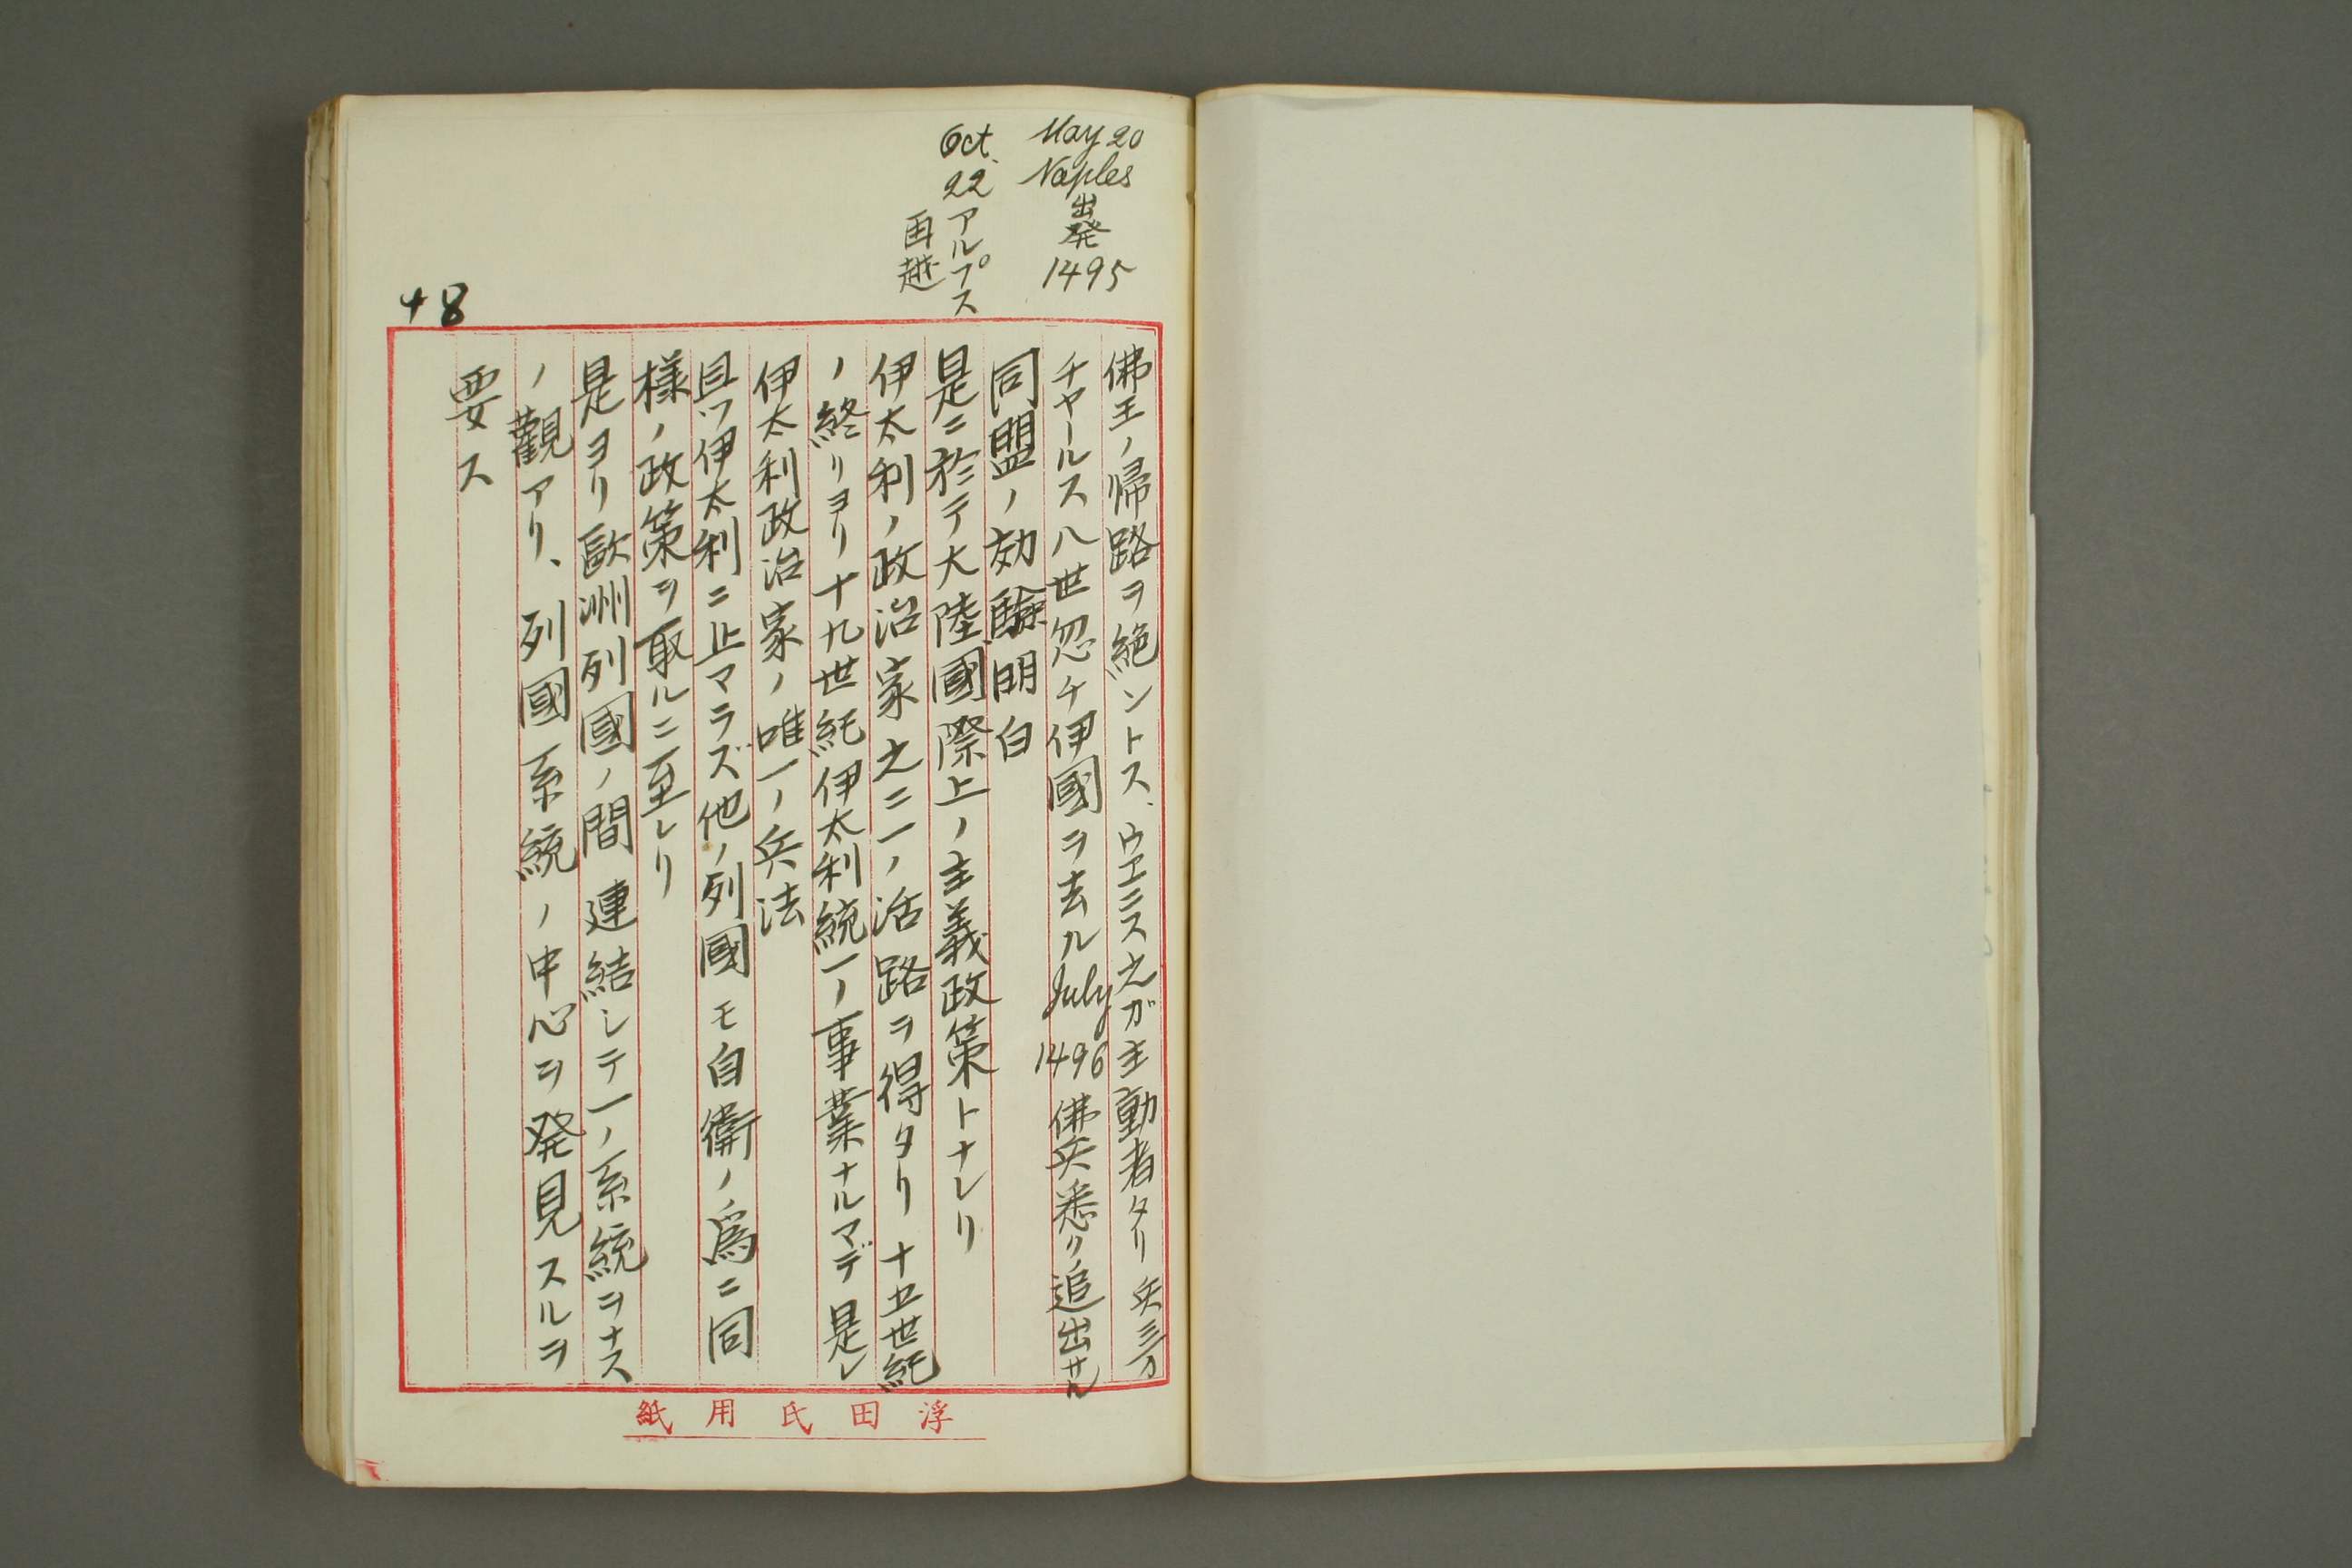 May 20
Naples
出発
1495
Oct.
22
アルプス
再越
48
佛王ノ帰路ヲ絶ントス、ウエニス之ガ主動者タリ 兵三万
チャールス八世忽チ伊國ヲ去ル July 1496 佛兵悉ク追出サル
同盟ノ効驗明白
是ニ於テ大陸國際上ノ主義政策トナレリ
伊太利ノ政治家之ニ一ノ活路ヲ得タリ 十五世紀
ノ終リヨリ十九世紀伊太利統一ノ事業ナルマデ是レ
伊太利政治家ノ唯一ノ兵法
且ツ伊太利ニ止マラズ他ノ列國モ自衛ノ爲ニ同
様ノ政策ヲ取ルニ至レリ
是ヨリ歐洲列國ノ間連結シテ一ノ系統ヲナス
ノ觀アリ、列國系統ノ中心ヲ発見スルヲ
要ス
浮田氏用紙